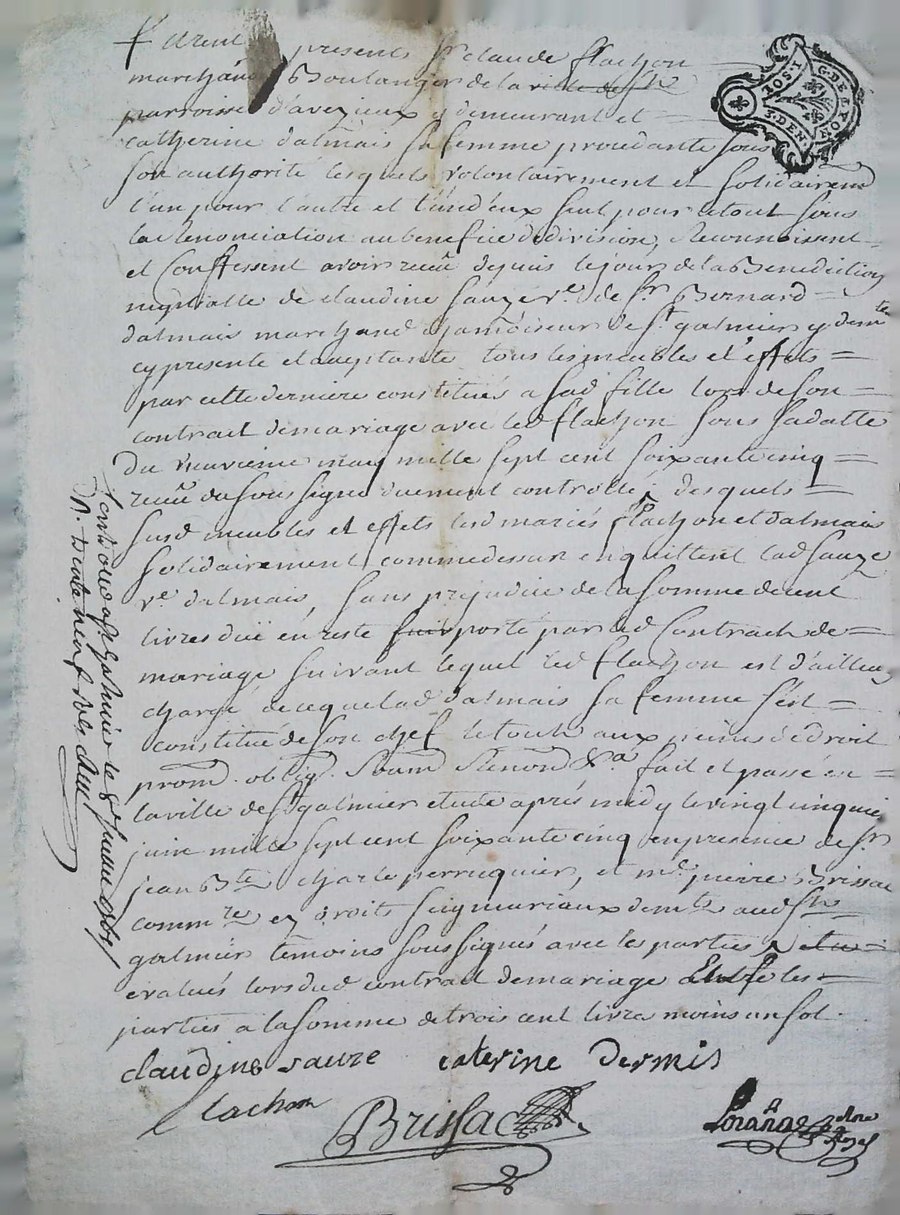 furent presents Sr claude flachon
marchand Boulanger de la ville de St
parroisse d'avezieux y demeurant et
catherine dalmais sa femme procedante sous
son authorité lesquels volontairement et solidairemt
l'un pour l'autre et l'un d'eux seul pour le tout sous
la Renonciation au benefice de division, Reconnoissent
et Confessent avoir receu depuis le jour de la Benediction
nuptialle de claudine sauze ve. de Sr Bernard
dalmais marchand chamoiseur de St galmier y demte
cy presente et aceptante tous les meubles et effets
par cette derniere constitués a sad fille lors de son
contrait de mariage avec led flachon sous sa datte
du neuvieme may mille sept cent soixante cinq
receu du soussigné duement controllé, desquels
susd meubles et effets lesd mariés flachon et dalmais
solidairement comme dessus en quittent lad sauze
ve dalmais, sans prejudice de la somme de cent
livres duë en reste porté par led Contrach de
mariage suivant lequel led flachon est d'ailleurs
chargé de ce que lad dalmais sa femme s'est
constitué de son chef le tout aux peines de droit
prom. oblig. Soum Renon &a. fait et passé en
la ville de St galmier etude aprés midy le vingt cinquie
juin mille sept cent soixante cinq en presence de Sr
jean Bte charle perruquier, et me. pierre Brissac
commre en droits seigneuriaux demts aud St
galmier temoins soussignés avec les parties
evalués lors dud contrait de mariage Entre les
parties a la somme de trois cent livres moins un sol.
claudine sauze caterine dermis
flachon
Brissac
Controlé a St galmier le
R. treize neuf sols
G. DE LYON
3. DEN.